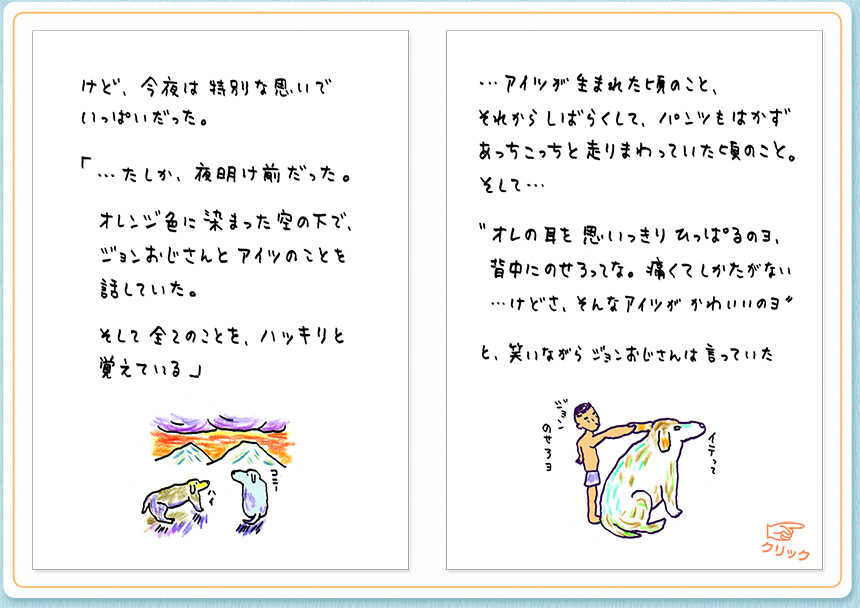 けど、今夜は特別な思いで
いっぱいだった。
「…たしか、夜明け前だった。
オレンジ色に染まった空の下で、
ジョンおじさんとアイツのことを
話していた。
そして全てのことを、ハッキリと
覚えている」
ハイ
…アイツが生まれた頃のこと、
それからしばらくして、パンツもはかず
あっちこっちと走りまわっていた頃のこと。
そして…
〝オレの耳を思いっきりひっぱるのヨ、
背中にのせろってな。痛くてしかたがない
…けどさ、そんなアイツがかわいいのヨ〟
と、笑いながらジョンおじさんは言っていた
ジョン
のせろヨ
イテって
クリック